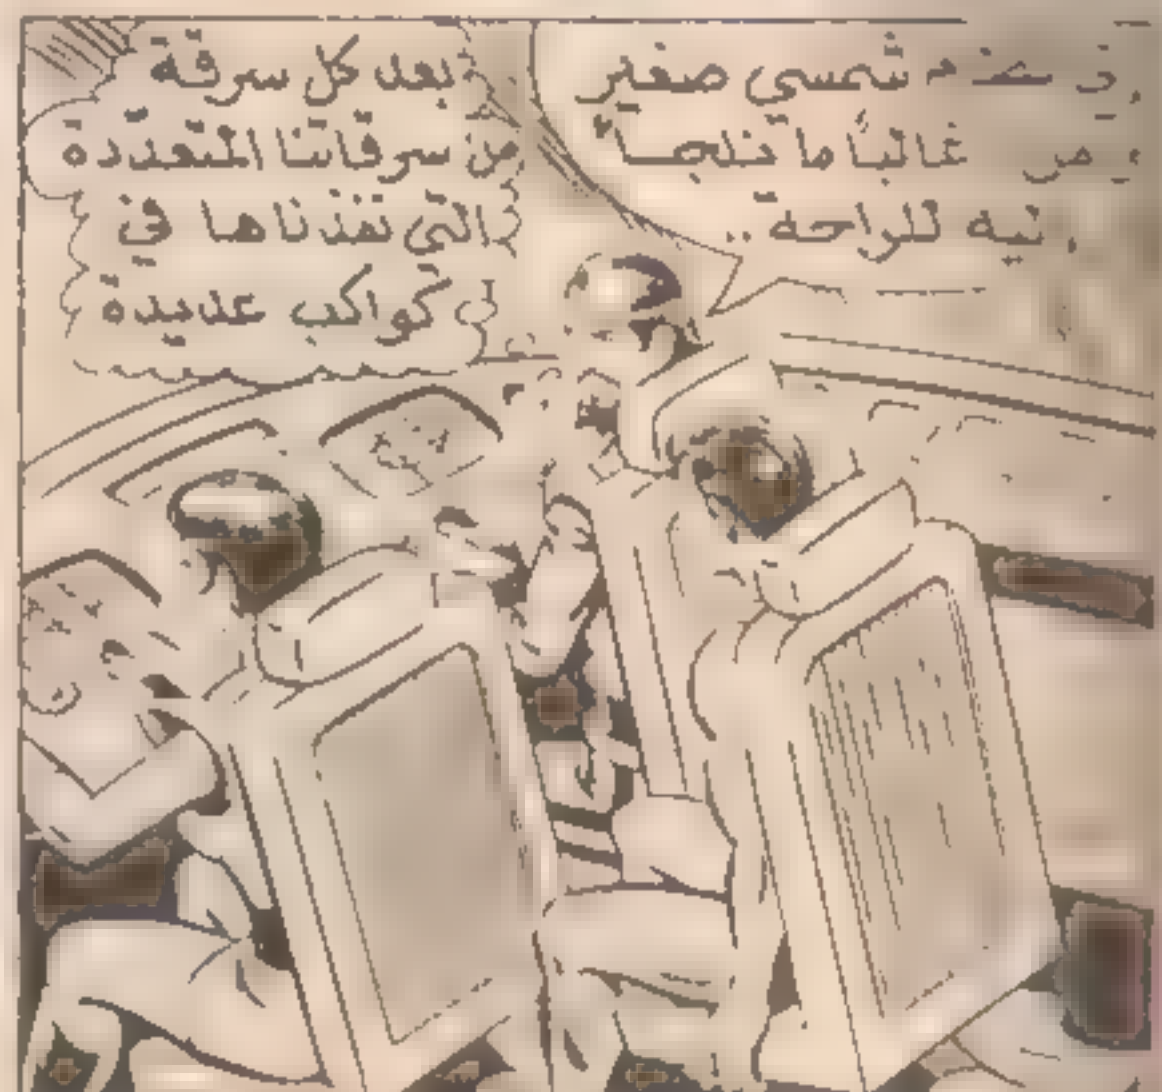 شمسي صغير
غالبًا ما نلجأ
للراحة ..
بعد كل سرقة
من سرقاتنا المتعدّدة
التي نفذناها في
كواكب عديدة